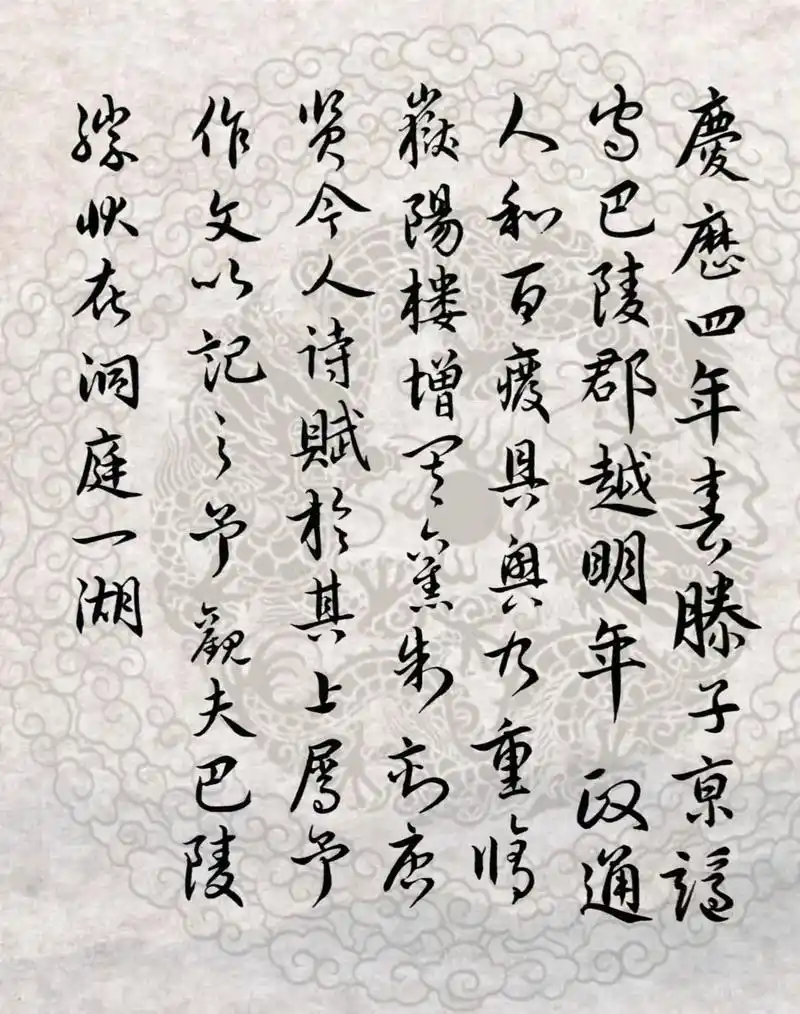 慶歷四年春滕子京謫
守巴陵郡越明年政通
人和百廢具興乃重脩
嶽陽楼增其舊制刻唐
贤今人诗賦於其上屬予
作文以記之予觀夫巴陵
勝状在洞庭一湖